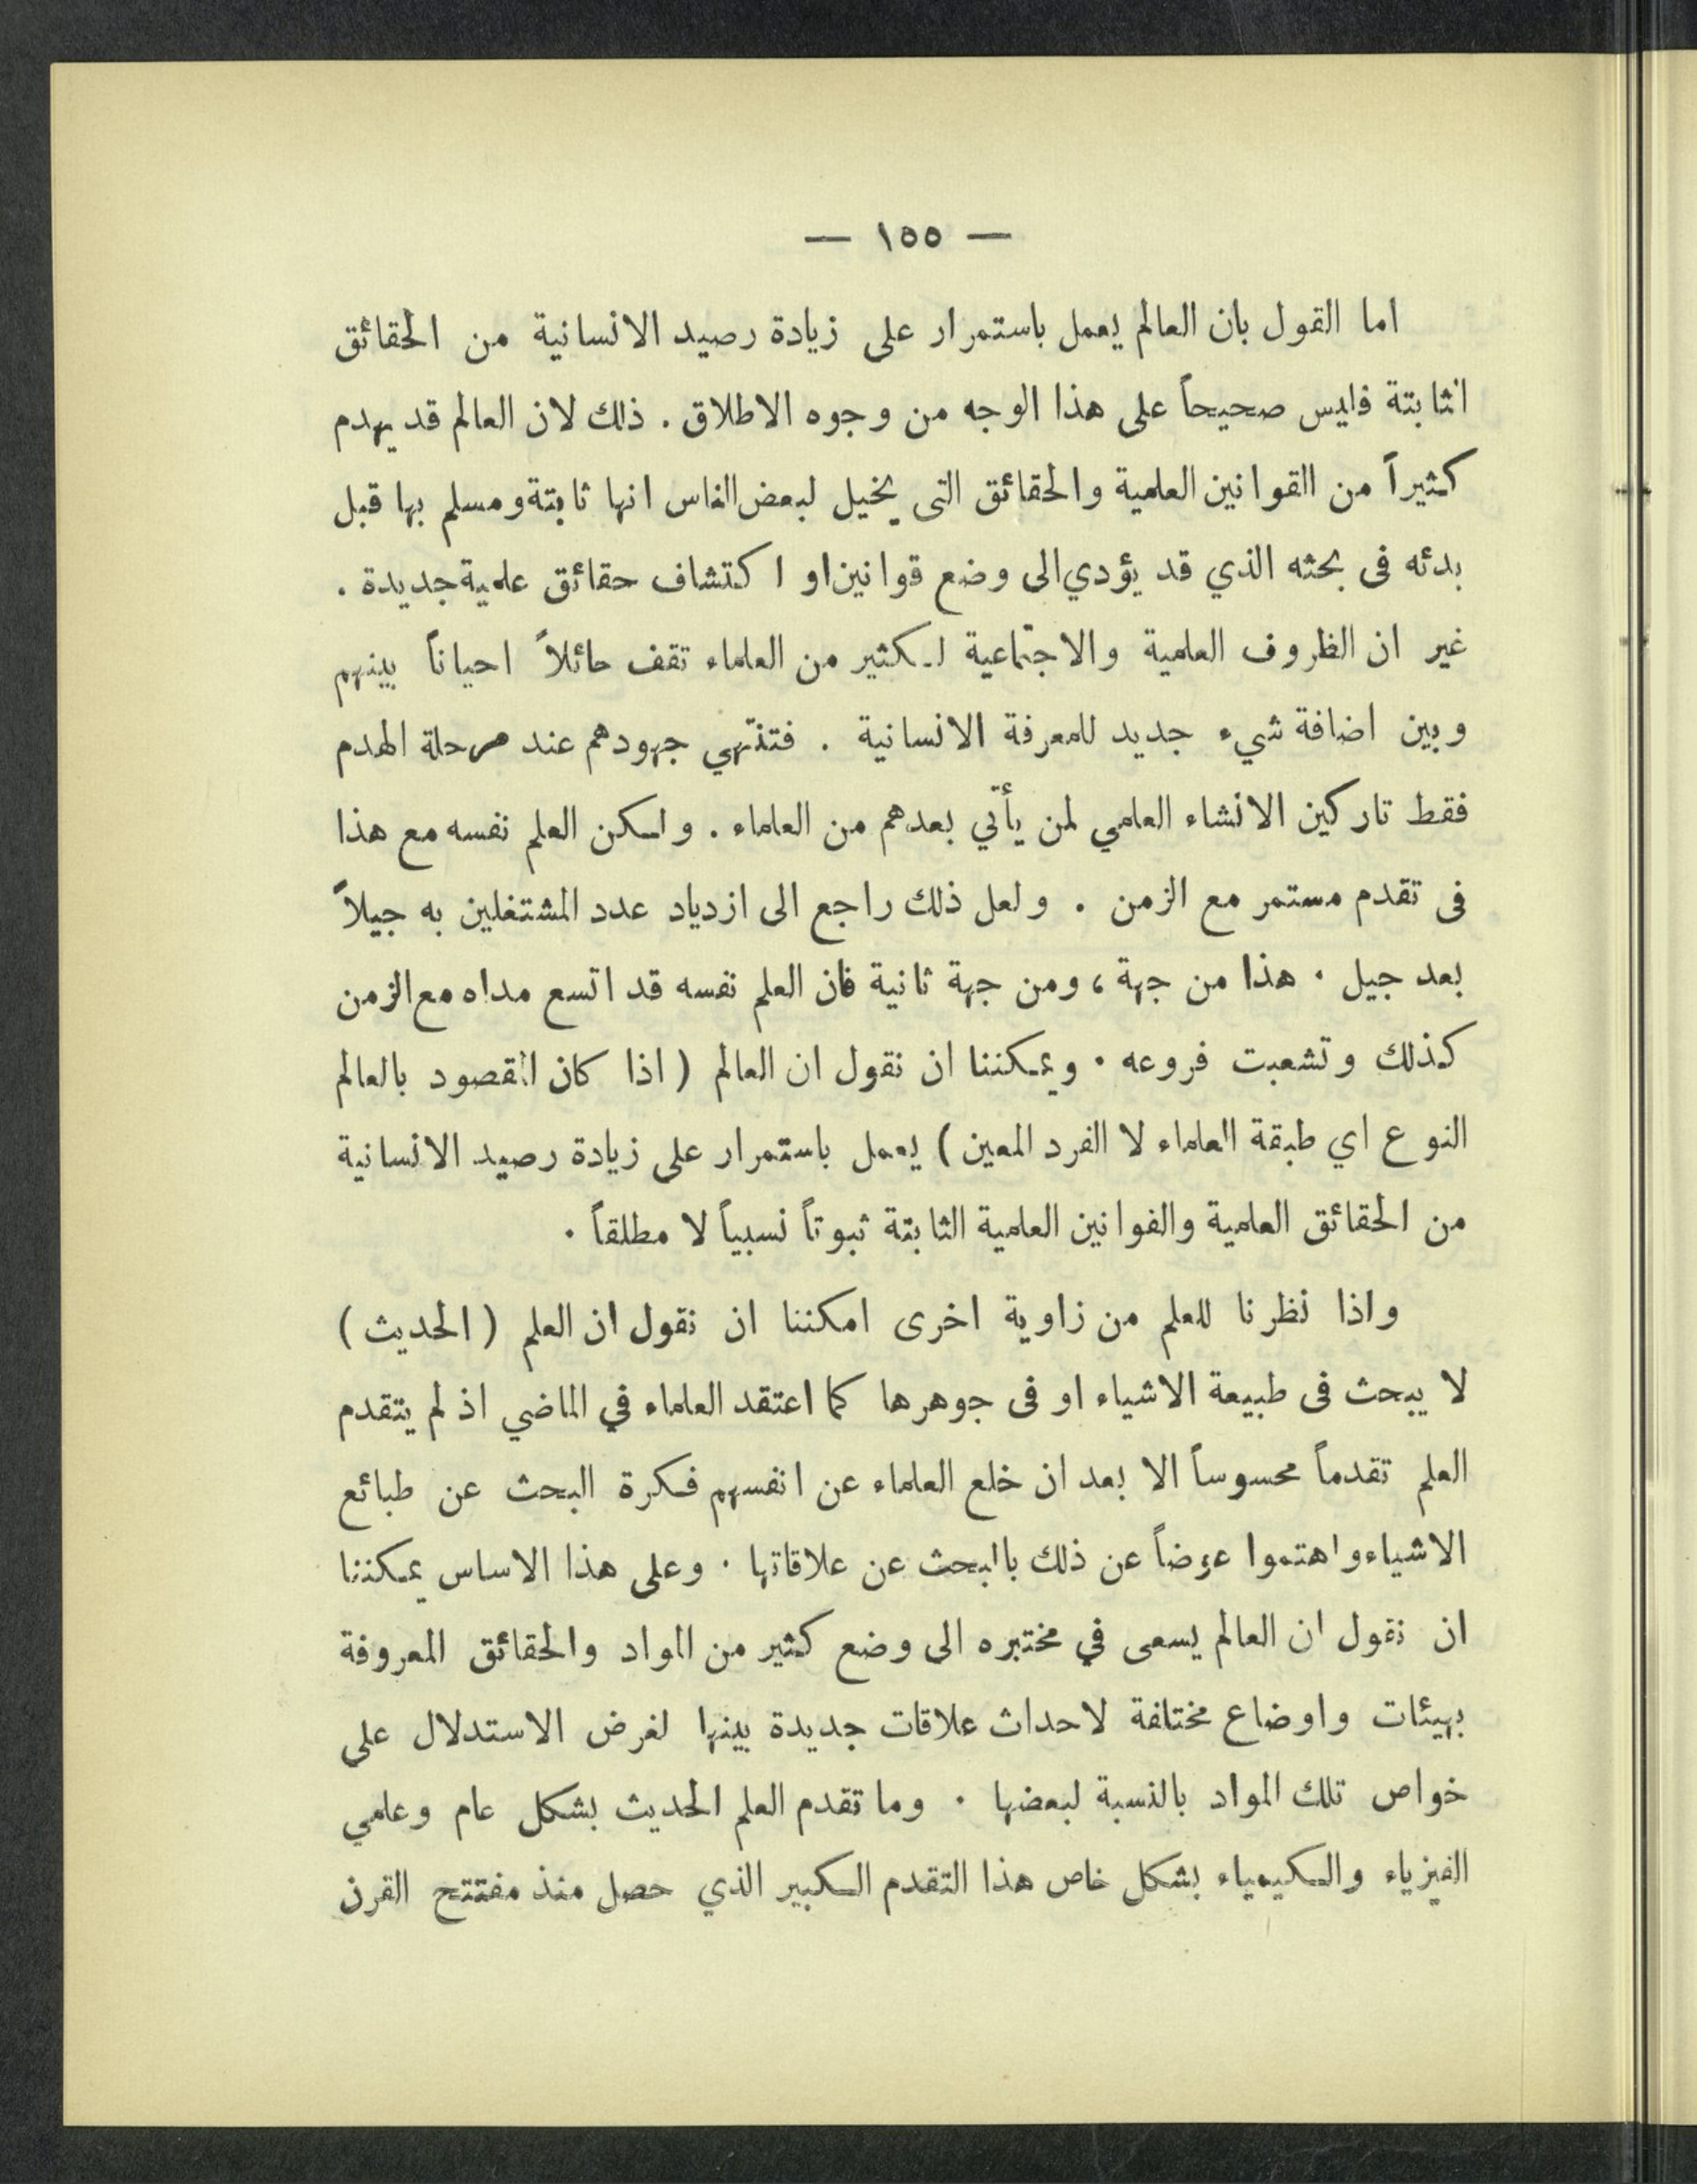 — ١٥٥ —
اما القول بان العالم يعمل باستمرار على زيادة رصيد الانسانية من الحقائق
الثابتة فليس صحيحاً على هذا الوجه من وجوه الاطلاق . ذلك لان العالم قد يهدم
كثيراً من القوانين العلمية والحقائق التى يخيل لبعض الناس انها ثابتة ومسلم بها قبل
بدئه فى بحثه الذي قد يؤدي الى وضع قوانين او اكتشاف حقائق علمية جديدة .
غير ان الظروف العلمية والاجتماعية لكثير من العلماء تقف حائلاً احياناً بينهم
وبين اضافة شيء جديد للمعرفة الانسانية . فتنتهي جهودهم عند مرحلة الهدم
فقط تاركين الانشاء العلمي لمن يأتي بعدهم من العلماء . ولكن العلم نفسه مع هذا
فى تقدم مستمر مع الزمن . ولعل ذلك راجع الى ازدياد عدد المشتغلين به جيلاً
بعد جيل . هذا من جهة ، ومن جهة ثانية فان العلم نفسه قد اتسع مداه مع الزمن
كذلك وتشعبت فروعه . ويمكننا ان نقول ان العالم ( اذا كان المقصود بالعالم
النوع اي طبقة العلماء لا الفرد المعين ) يعمل باستمرار على زيادة رصيد الانسانية
من الحقائق العلمية والفوانين العلمية الثابتة ثبوتاً نسبياً لا مطلقاً .
واذا نظرنا للعلم من زاوية اخرى امكننا ان نقول ان العلم ( الحديث )
لا يبحث فى طبيعة الاشياء او فى جوهرها كما اعتقد العلماء في الماضي اذ لم يتقدم
العلم تقدماً محسوساً الا بعد ان خلع العلماء عن انفسهم فكرة البحث عن طبائع
الاشياء واهتموا عوضاً عن ذلك بالبحث عن علاقاتها . وعلى هذا الاساس يمكننا
ان نقول ان العالم يسعى في مختبره الى وضع كثير من المواد والحقائق المعروفة
بهيئات واوضاع مختلفة لاحداث علاقات جديدة بينها لغرض الاستدلال على
خواص تلك المواد بالنسبة لبعضها . وما تقدم العلم الحديث بشكل عام وعلمي
الفيزياء والكيمياء بشكل خاص هذا التقدم الكبير الذي حصل منذ مفتتح القرن